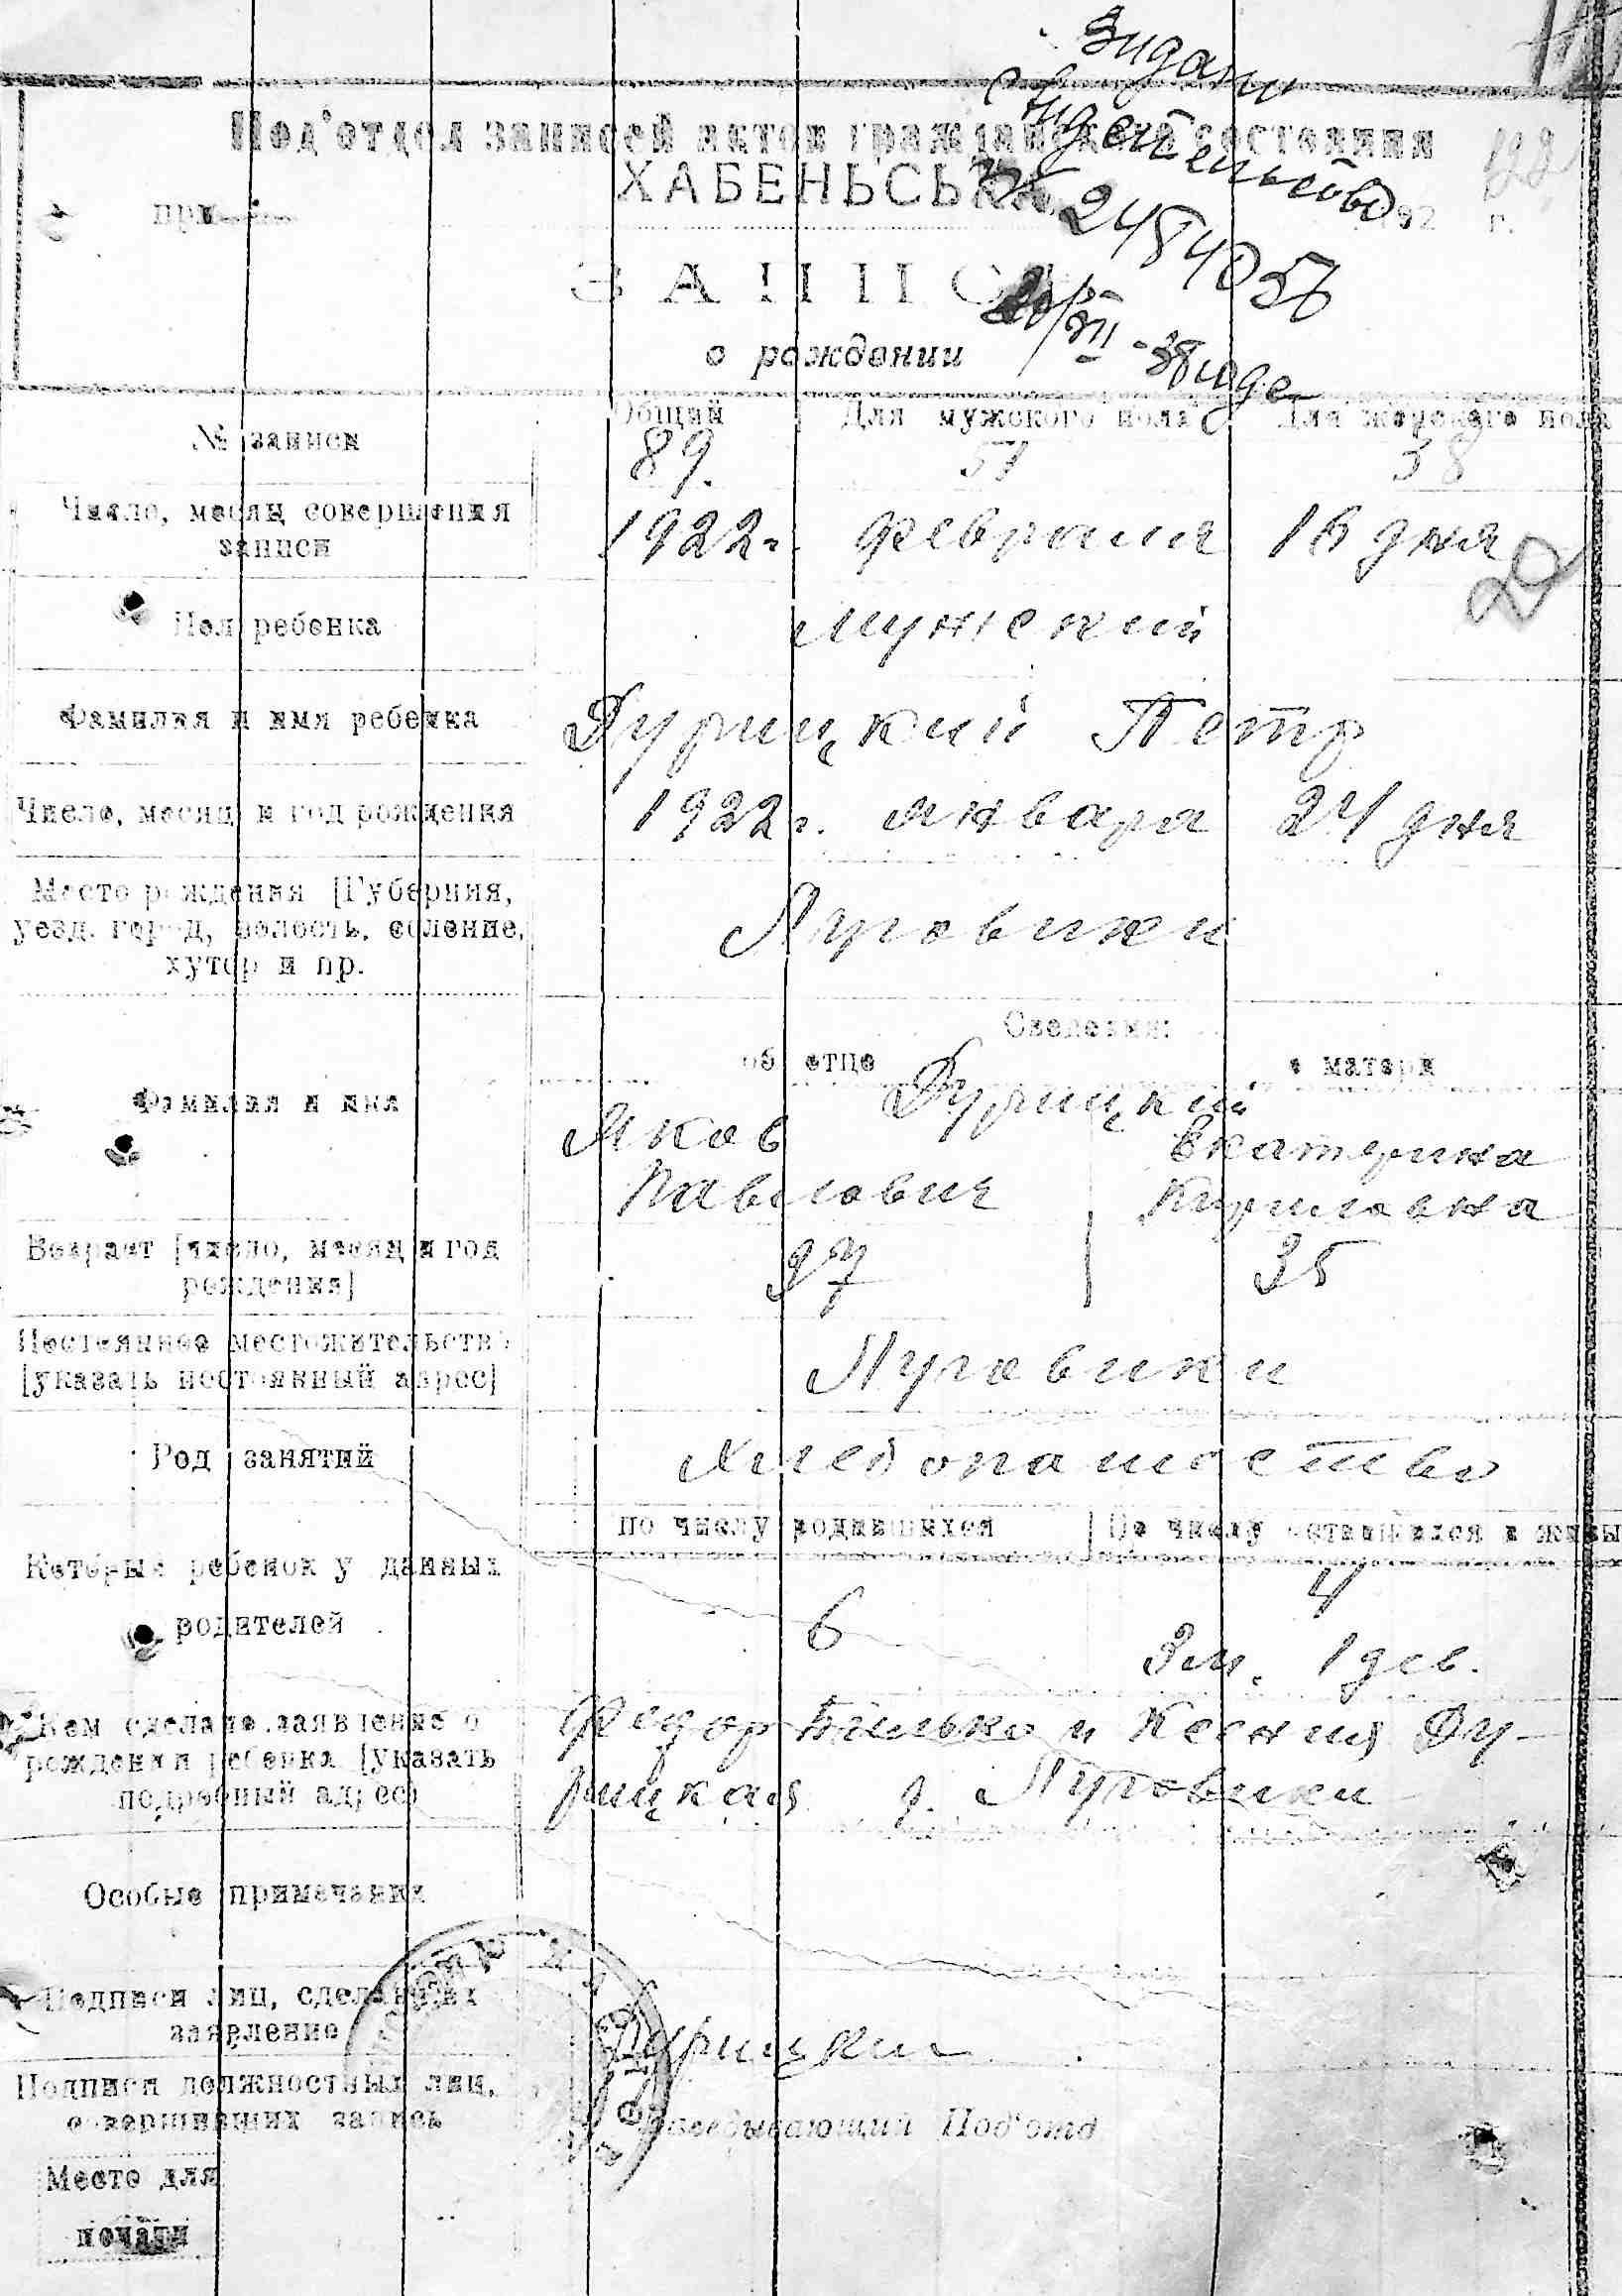 видано
свидетельство
№ 2484056
20/VII - 38 года
Под'отдел записей актов гражданского состояния
ХАБЕНЬСЬК
при 192 г.
ЗАПИСЬ
о рождении
№ записи Общий Для мужского пола Для женского пола
89. 51 38
Число, месяц совершения
записи
1922 г. февраля 16 дня
20
Пол ребенка мужский
Фамилия и имя ребенка Дурицкий Петр
Число, месяц и год рождения 1922 г. января 24 дня
Место рождения [Губерния,
уезд, город, волость, селение,
хутор и пр.
Луговики
Сведения:
об отце о матери
Фамилия и имя Дурицкий
Яков Екатерина
Павлович Кириловна
Возраст [число, месяц и год
рождения]
37 35
Постоянное местожительство
[указать постоянный адрес]
Луговики
Род занятий Хлебопашество
по числу родившихся По числу оставшихся в живы
Который ребенок у данных
родителей
6 4
3 м. 1 дев.
Кем сделано заявление о
рождении ребенка [указать
подробный адрес]
Федор Билько и Ксения Ду-
рицкая д. Луговики
Особые примечания
Подписи лиц, сделавших
заявление
Дурицкий
Подписи должностных лиц,
совершивших запись
Заведывающий Под'отд
Место для
печати